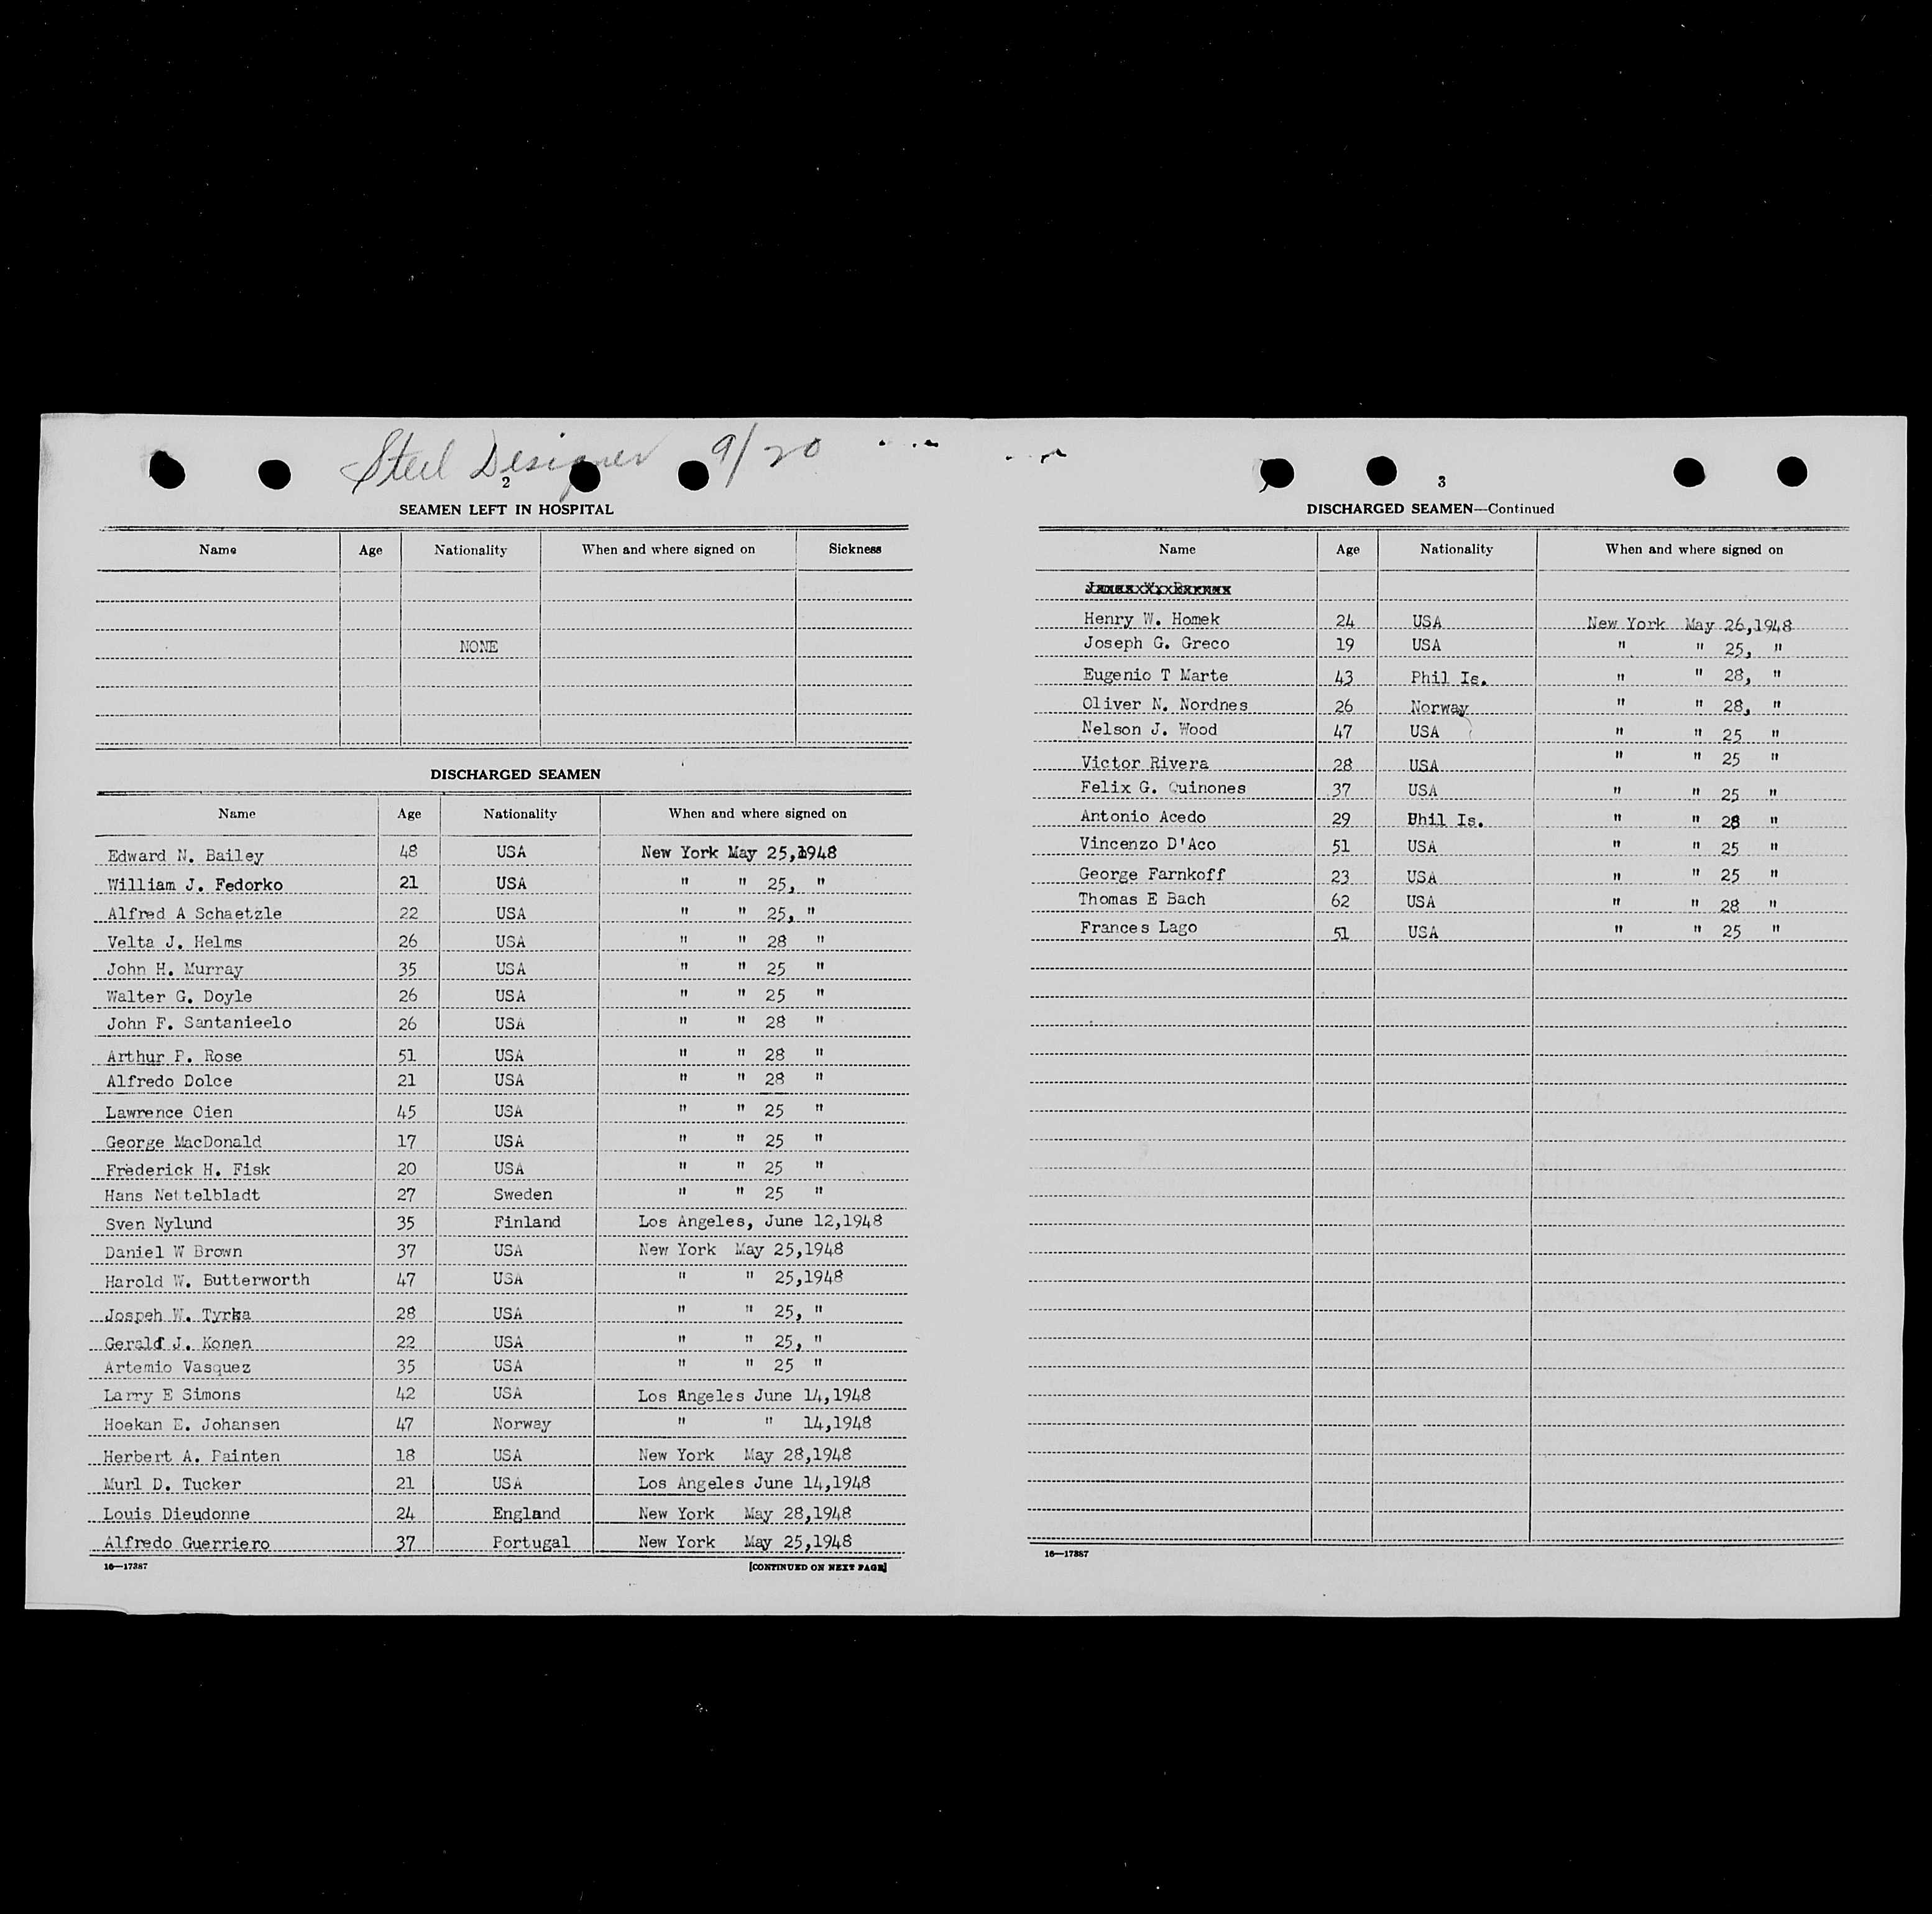 Steel Designer 9/20
2
SEAMEN LEFT IN HOSPITAL
Name Age Nationality When and where signed on Sickness
NONE
DISCHARGED SEAMEN
Name Age Nationality When and where signed on
Edward N. Bailey 48 USA New York May 25,1948
William J. Fedorko 21 USA " " 25, "
Alfred A Schaetzle 22 USA " " 25, "
Velta J. Helms 26 USA " " 28 "
John H. Murray 35 USA " " 25 "
Walter G. Doyle 26 USA " " 25 "
John F. Santanieelo 26 USA " " 28 "
Arthur P. Rose 51 USA " " 28 "
Alfredo Dolce 21 USA " " 28 "
Lawrence Oien 45 USA " " 25 "
George MacDonald 17 USA " " 25 "
Frederick H. Fisk 20 USA " " 25 "
Hans Nettelbladt 27 Sweden " " 25 "
Sven Nylund 35 Finland Los Angeles, June 12,1948
Daniel W Brown 37 USA New York May 25,1948
Harold W. Butterworth 47 USA " " 25,1948
Jospeh W. Tyrka 28 USA " " 25, "
Gerald J. Konen 22 USA " " 25, "
Artemio Vasquez 35 USA " " 25 "
Larry E Simons 42 USA Los Angeles June 14,1948
Hoekan E. Johansen 47 Norway " " 14,1948
Herbert A. Painten 18 USA New York May 28,1948
Murl D. Tucker 21 USA Los Angeles June 14,1948
Louis Dieudonne 24 England New York May 28,1948
Alfredo Guerriero 37 Portugal New York May 25,1948
16—17387 [CONTINUED ON NEXT PAGE]
3
DISCHARGED SEAMEN—Continued
Name Age Nationality When and where signed on
Henry W. Homek 24 USA New York May 26,1948
Joseph G. Greco 19 USA " " 25, "
Eugenio T Marte 43 Phil Is. " " 28, "
Oliver N. Nordnes 26 Norway " " 28, "
Nelson J. Wood 47 USA " " 25 "
Victor Rivera 28 USA " " 25 "
Felix G. Quinones 37 USA " " 25 "
Antonio Acedo 29 Phil Is. " " 28 "
Vincenzo D'Aco 51 USA " " 25 "
George Farnkoff 23 USA " " 25 "
Thomas E Bach 62 USA " " 28 "
Frances Lago 51 USA " " 25 "
16—17387